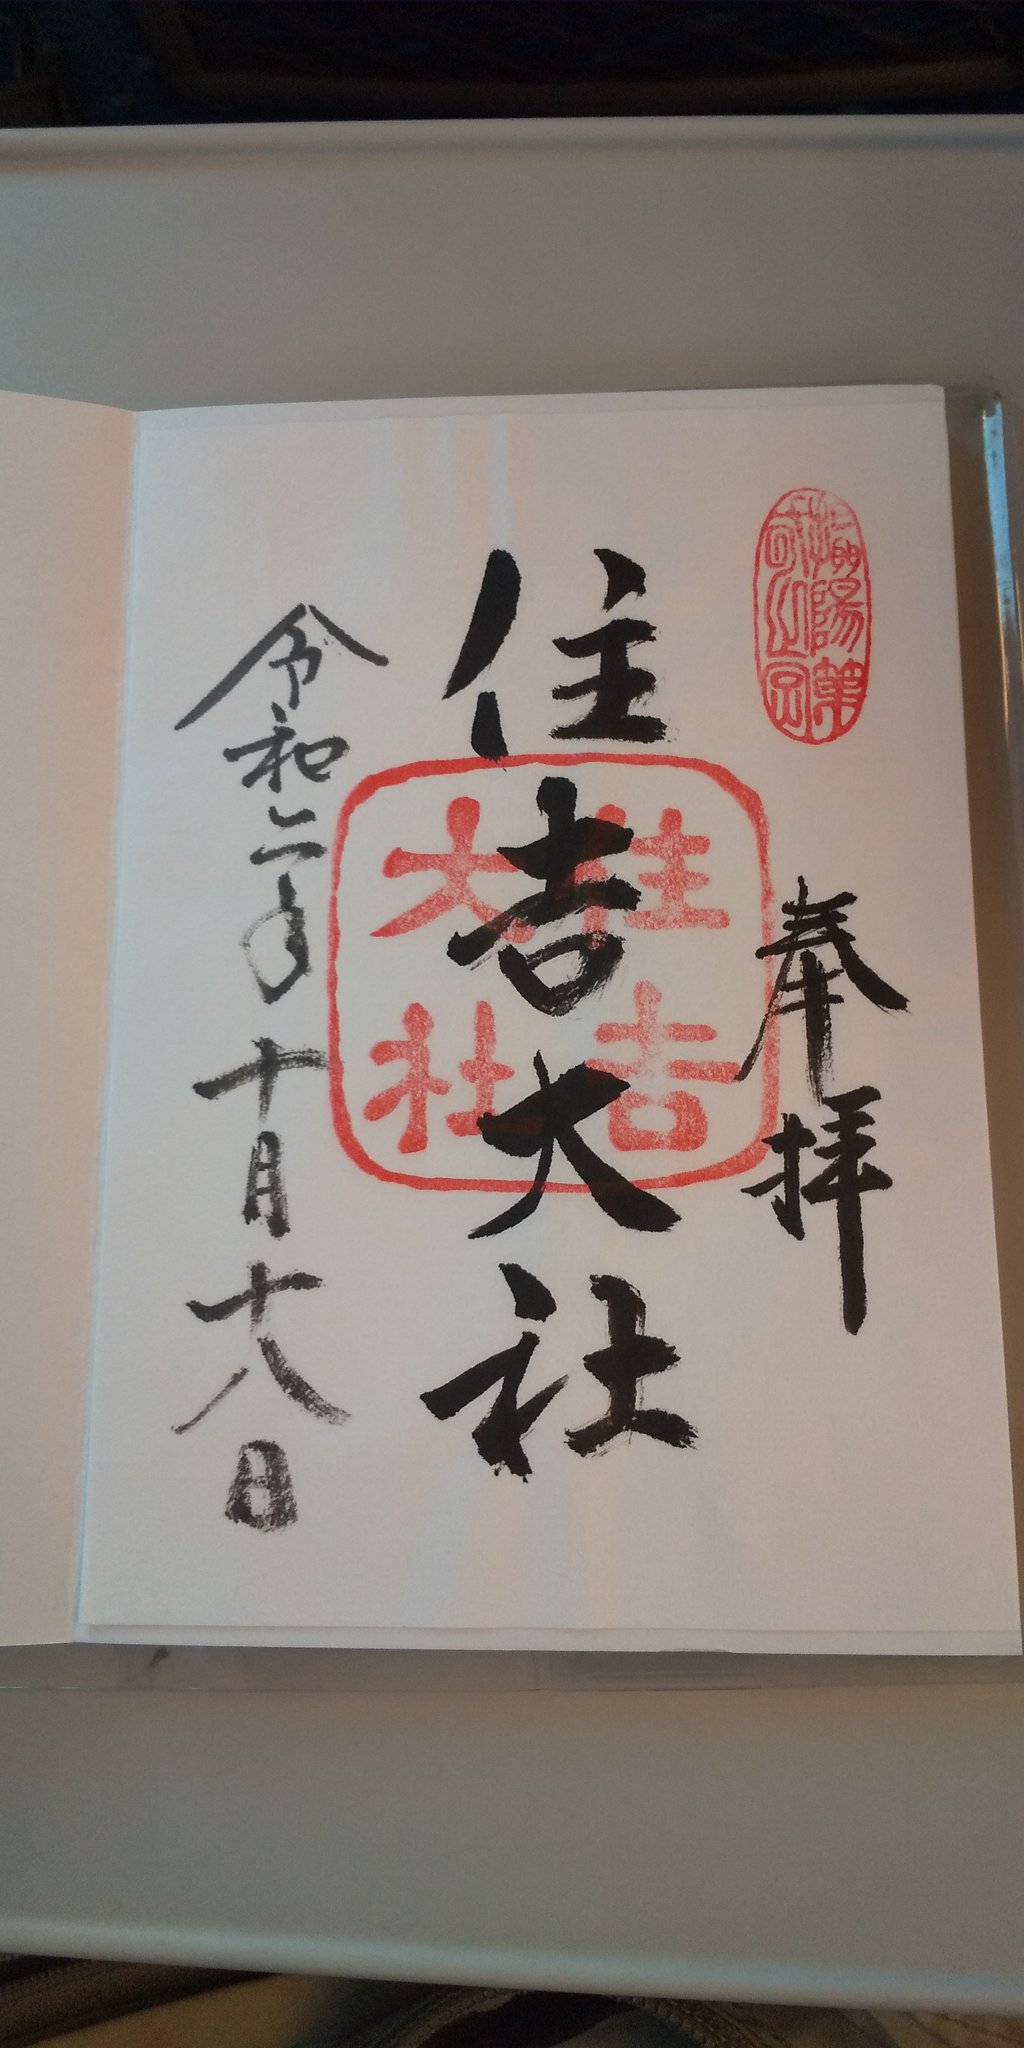 奉拝
住吉大社
令和二年十月十八日
住吉
大社